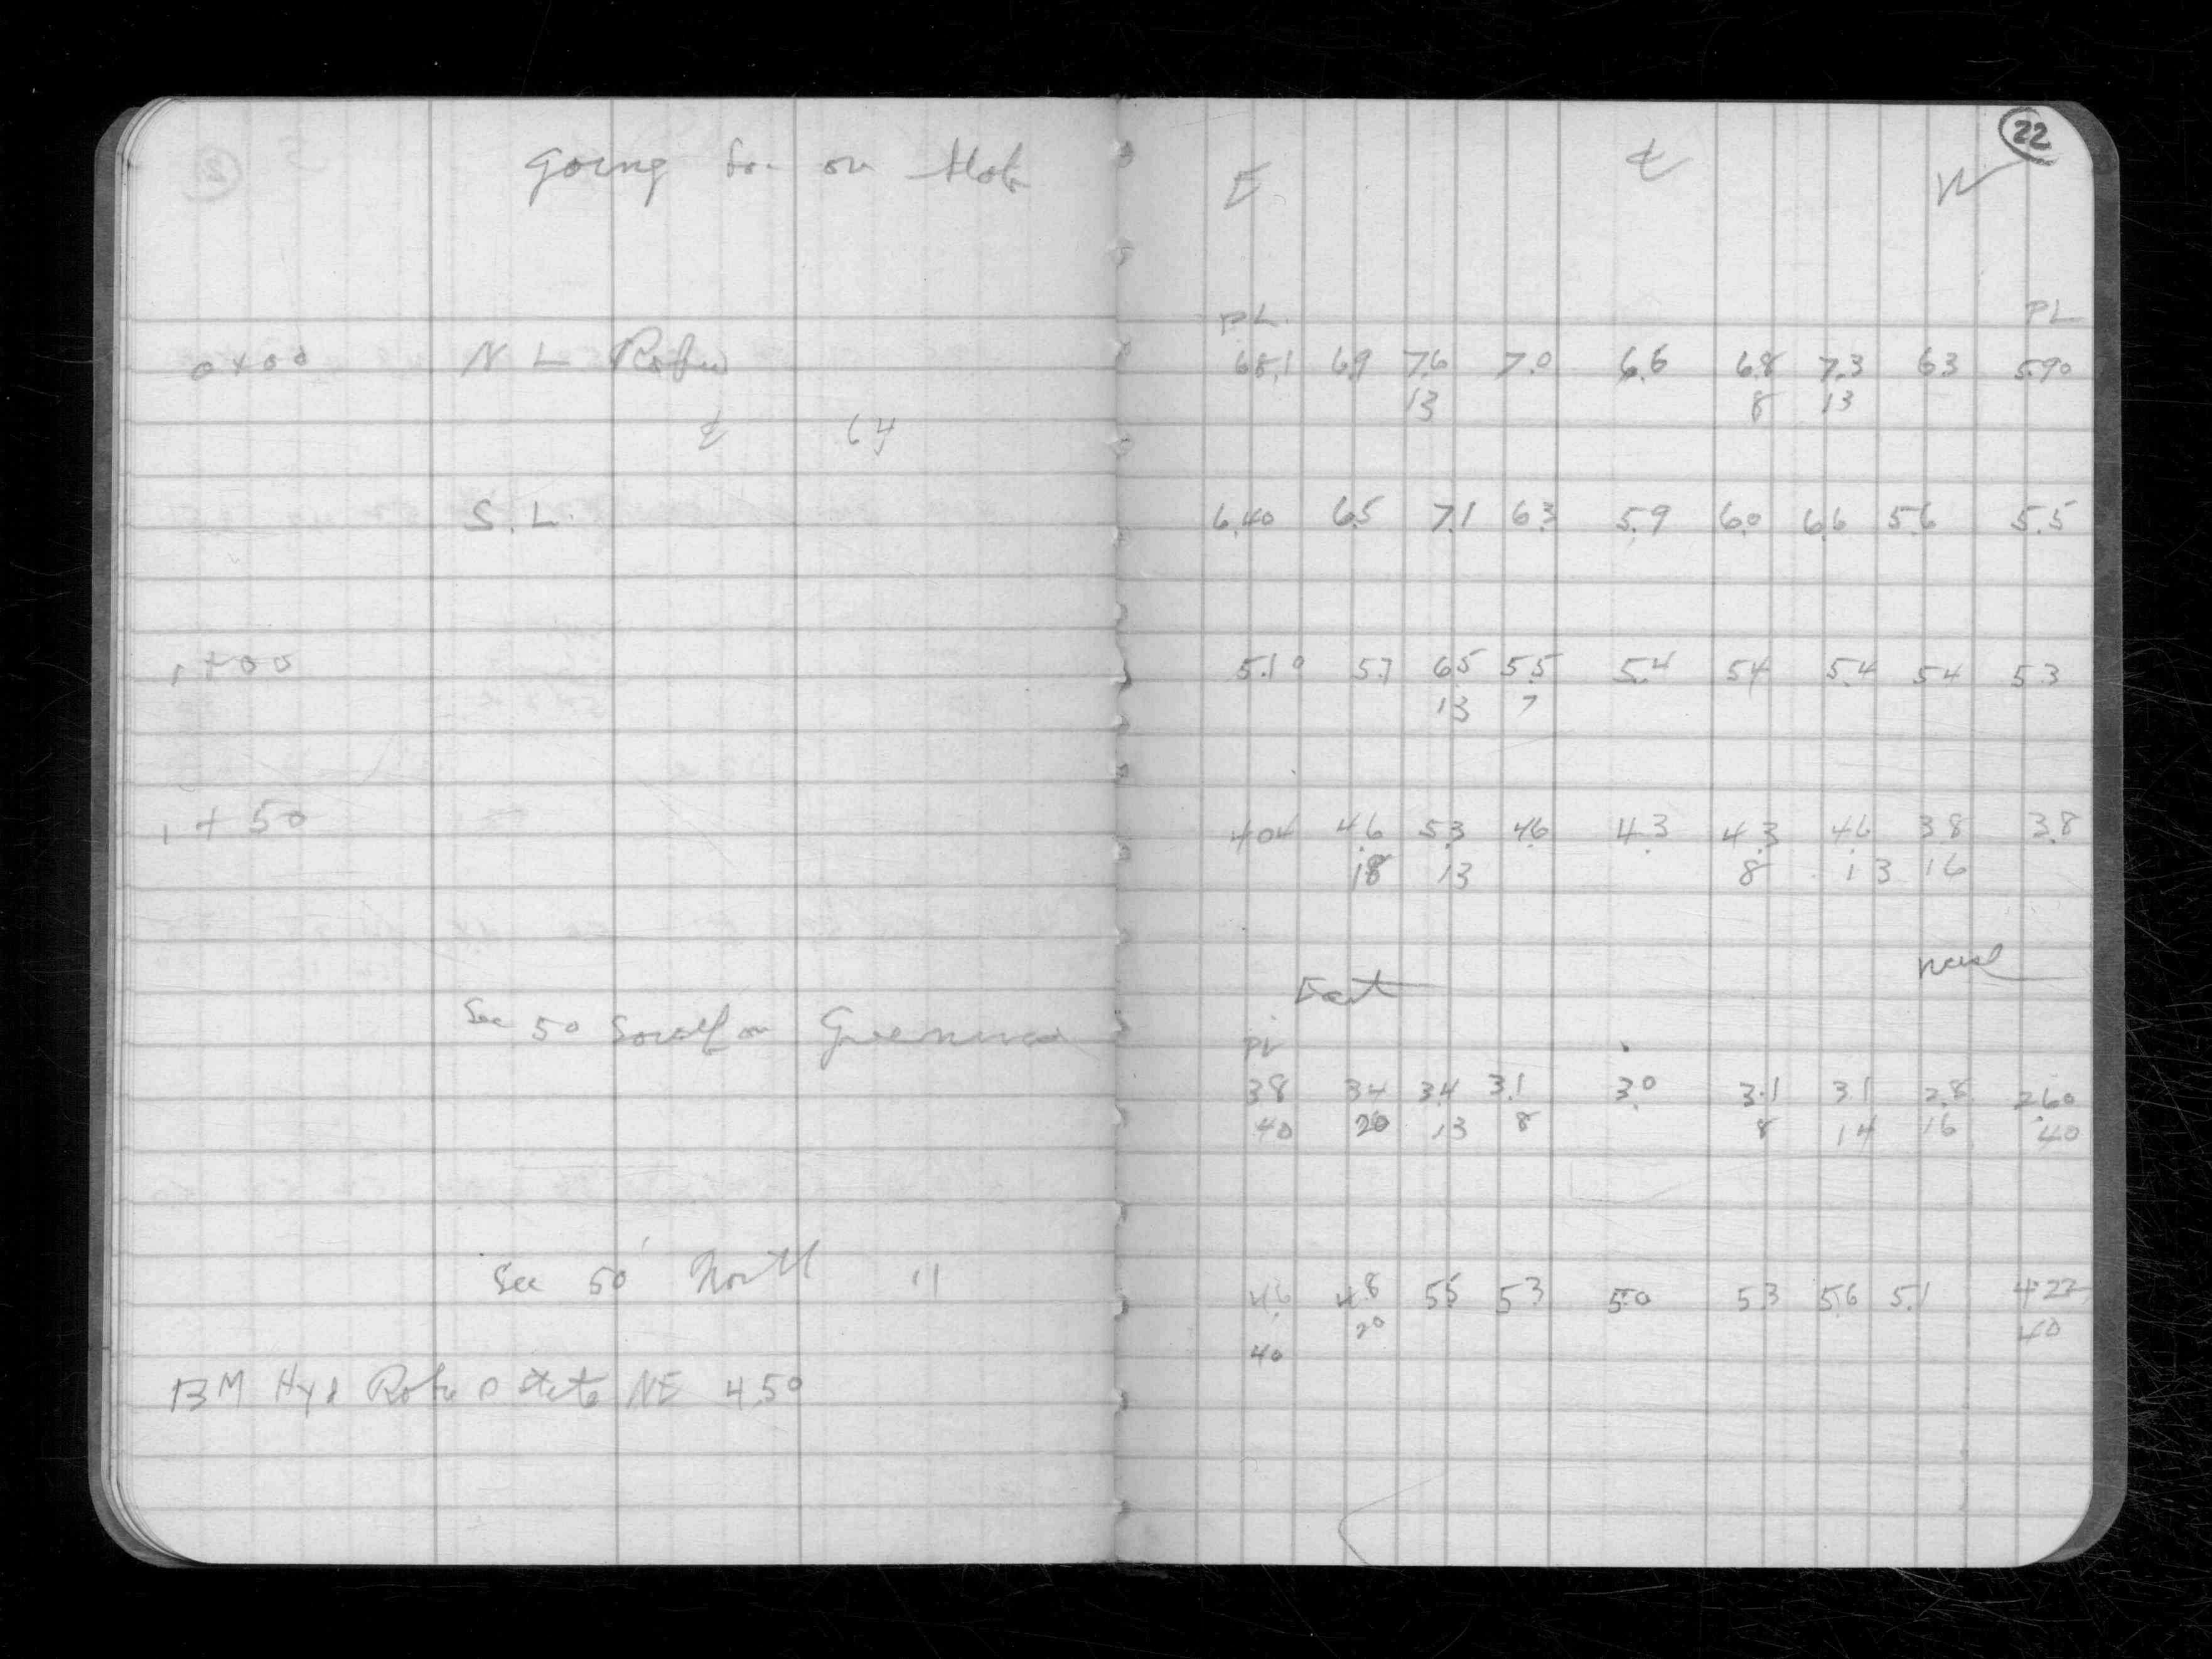 22
going So. on State
E ℄ W
PL. PL
0+00 N L Robie 68.1 6.9 7.6 7.0 6.6 6.8 7.3 6.3 5.90
13 8 13
℄ 64
S. L. 6.40 6.5 7.1 6.3 5.9 6.0 6.6 5.6 5.5
1+00 5.10 5.7 6.5 5.5 5.4 5.4 5.4 5.4 5.3
13 7
1+50 404 4.6 5.3 4.6 4.3 4.3 4.6 3.8 3.8
18 13 8 13 16
East West
Sec 50 South on Greenwood
PL
3.8 3.4 3.4 3.1 3.0 3.1 3.1 2.8 2.60
40 20 13 8 8 14 16 40
Sec 50' North 11 4.6 4.8 5.5 5.3 5.0 5.3 5.6 5.1 4.22
20 40
40
BM Hyd Robie & State NE 4.50